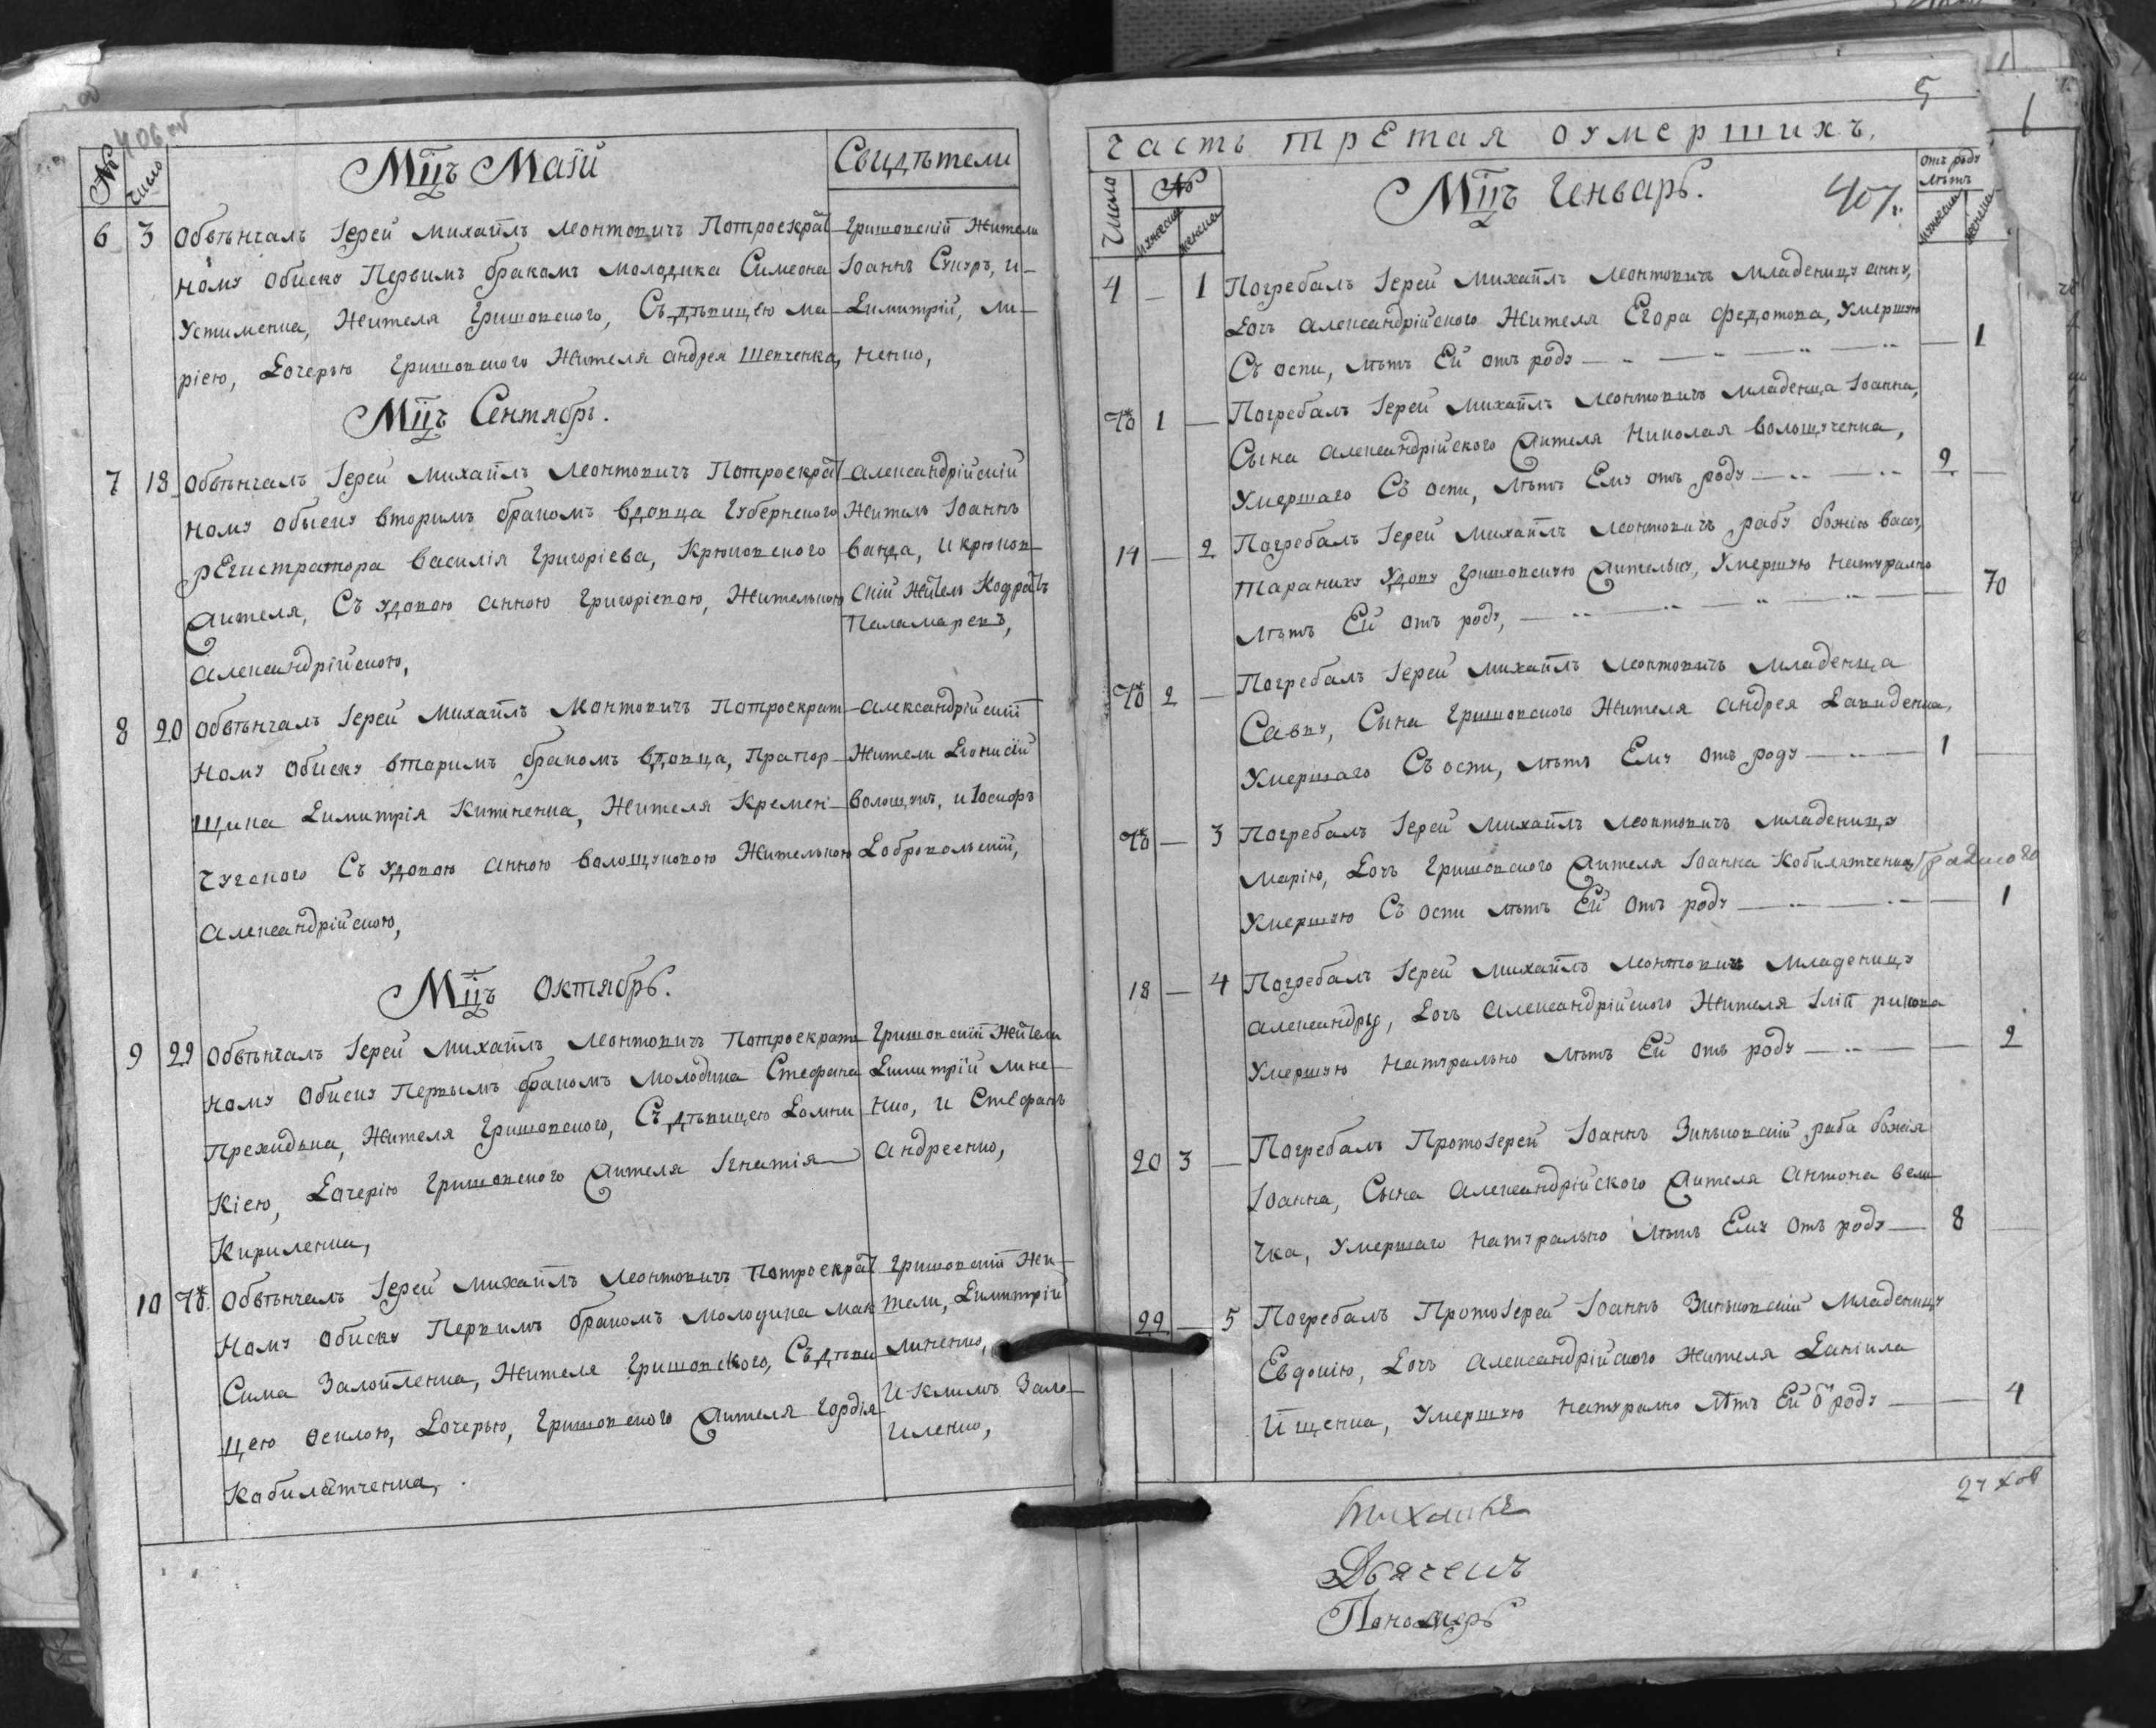 406 об
№ Число Мцъ Маій Свидѣтели
6 3 Обвѣнчалъ Іерей Михаилъ Леонтовичъ Потроекрат-
ному обиску Первимъ бракомъ молодика Симеона
Устименка, Жителя Гришовского, Съ дѣвицею Ма-
ріею, Дочерью Гришовского Жителя Андрея Шевченка,
Гришовскій Жители
Іоаннъ Сукуръ, и
Димитрій, Ли-
ненко,
Мцъ Сентябръ.
7 18 Обвѣнчалъ Іерей Михаилъ Леонтовичъ Потроекрат
ному обыску вторимъ бракомъ вдовца Губернского
рЕгистратора Василія Григоріева, Крюковского
Жителя, Съ удовою Анною Григоріевою, Жителькою
Александрійскою,
Александрійскій
Житель Іоаннъ
Ванда, и крюков-
скій Житель Кодратъ
Паламаревъ,
8 20 Обвѣнчалъ Іерей Михаилъ Леонтовичъ Потроекрат
ному обиску вторимъ бракомъ вдовца, Прапор-
щика Димитрія Китченка, Жителя Кремен-
чугского Съ удовою Анною Волощуковою Жителькою
Александрійскою,
Александрійскіи
Жители Діонисій
Волощукъ, и Іосифъ
Добровольскій,
Мцъ Октябрь.
9 22 Обвѣнчалъ Іерей Михаилъ Леонтовичъ Потроекрат
ному Обиску Первымъ бракомъ Молодика Стефана
Прехидька, Жителя Гришовского, Съ дѣвицею Домни
кіею, Дочерію Гришовского Жителя Ігнатія
Кириленка,
Гришовскіи Жители
Димитрій Лине-
нко, и Стефанъ
Андреенко,
10 Тож. Обвѣнчалъ Іерей Михаилъ Леонтовичъ Потроекрат
ному Обиску Первимъ бракомъ молодика Мак
сима Залоиленка, Жителя Гришовского, Съ дѣви
цею Осклою, Дочерью, Гришовского Жителя Гордія
Кобилятченка,
Гришовскіи Жи-
тели, Димитрій
Линенко,
И Климъ Зало-
иленко,
5
часть трЕтая оумершихъ.
Число № мужеска женска Мцъ Генварь. 407. отъ роду лѣтъ мужеска женска
4 — 1 Погребалъ Іерей Михаилъ Леонтовичъ младеницу анну,
Дочъ Александрійского Жителя Егора Федотова, Умершую
Съ оспи, лѣтъ Ей отъ роду — 1
Тож 1 — Погребалъ Іерей Михаилъ Леонтовичъ младенца Іоанна,
Сына Александрійского Жителя Николая Волощученка,
Умершаго Съ оспи, лѣтъ Ему отъ роду — 2 —
14 — 2 Погребалъ Іерей Михаилъ Леонтовичъ рабу божію Вассу,
Тараниху Удову Гришовскую Жительку, Умершую Натурално
лѣтъ Ей отъ роду, — 70
Тож 2 — Погребалъ Іерей Михаилъ Леонтовичъ младенца
Савву, Сына Гришовского Жителя Андрея Давиденка,
Умершаго Съ оспи, лѣтъ Ему отъ роду — 1 —
Тож — 3 Погребалъ Іерей Михаилъ Леонтовичъ младеницу
Марію, Дочъ Гришовского Жителя Іоанна Кобилятченка
Умершую Съ оспи лѣтъ Ей отъ роду — 1
18 — 4 Погребалъ Іерей Михаилъ Леонтовичъ младеницу
Александру, Дочъ Александрійского Жителя Іліи рикова
Умершую Натурально лѣтъ Ей отъ роду — 2
20 3 — Погребалъ ПротоІерей Іоаннъ Зиньковскій раба божія
Іоанна, Сына Александрійского Жителя Антона вели
чка, Умершаго Натурально лѣтъ Ему отъ роду — 8 —
22 — 5 Погребалъ ПротоІерей Іоаннъ Зиньковскій младеницу
Евдокію, Дочъ Александрійского Жителя Даніила
Ищенка, Умершую Натурално лѣтъ Ей о роду — 4
Дьячекъ
Пономарь